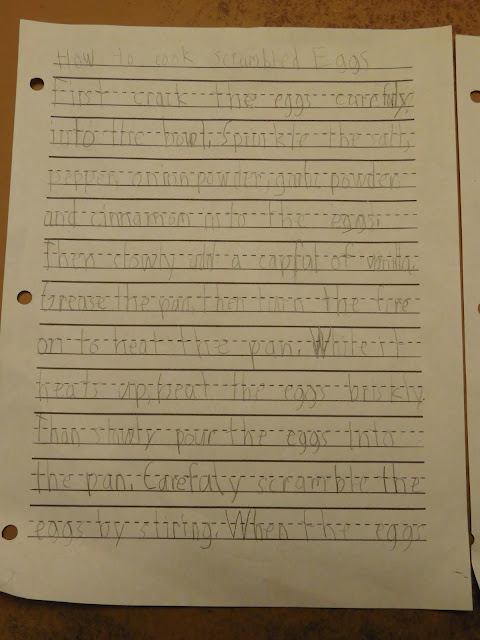 How to cook scrambled Eggs
First crack the eggs carefuly
into the bowl. Sprinkle the salt,
pepper, onion powder, garlic powder
and cinnamon into the eggs.
Then slowly add a capful of vanilla.
Grease the pan, then turn the fire
on to heat the pan. While it
heats up, beat the eggs briskly.
Than slowly pour the eggs into
the pan. Carefuly scramble the
eggs by stiring. When the eggs